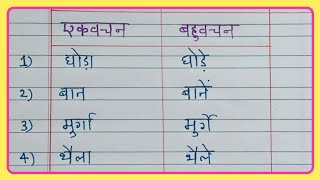 एकवचन बहुवचन
1) घोड़ा घोड़े
2) बान बानें
3) मुर्गा मुर्गे
4) थैला थैले